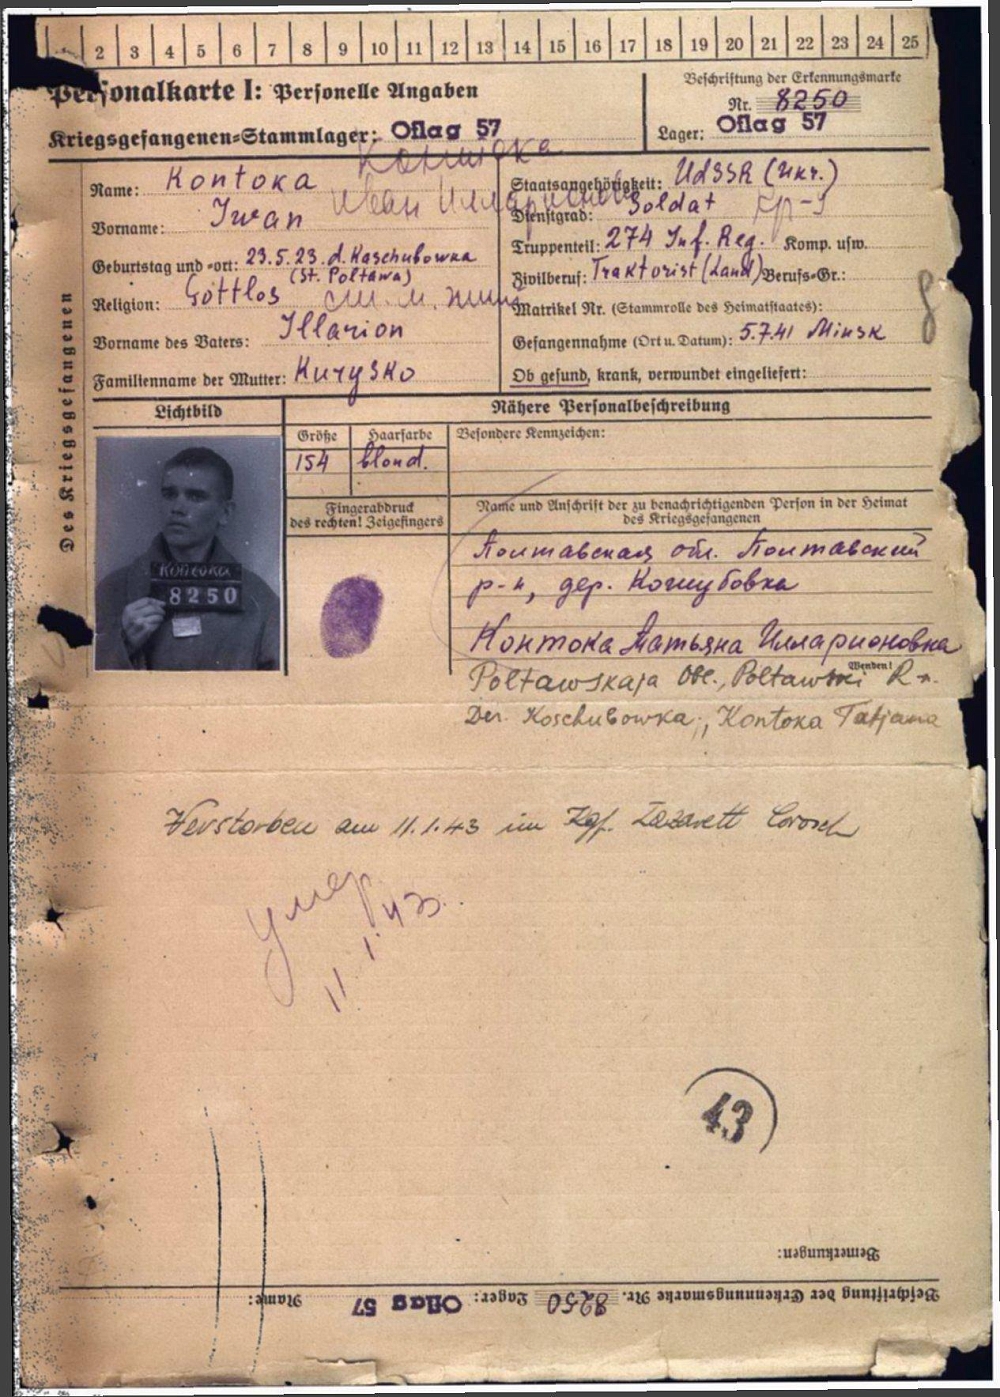 2 3 4 5 6 7 8 9 10 11 12 13 14 15 16 17 18 19 20 21 22 23 24 25
Personalkarte I: Personelle Angaben
Kriegsgefangenen-Stammlager: Oflag 57
Beschriftung der Erkennungsmarke
Nr. 8250
Lager: Oflag 57
Des Kriegsgefangenen
Name: Kontoka
Vorname: Iwan
Иван Илларионов
Geburtstag und -ort: 23.5.23. d. Kaschubowka
(St. Poltawa)
Religion: Gottlos
Vorname des Vaters: Illarion
Familienname der Mutter: Kurysko
Staatsangehörigkeit: UdSSR (Ukr.)
Dienstgrad: Soldat
Truppenteil: 274 Inf. Reg. Komp. usw.
Zivilberuf: Traktorist (Land) Berufs-Gr.:
Matrikel Nr. (Stammrolle des Heimatstaates):
Gefangennahme (Ort u. Datum): 5.7.41 Minsk
Ob gesund, krank, verwundet eingeliefert:
8
Lichtbild
Nähere Personalbeschreibung
Größe
Haarfarbe
Besondere Kennzeichen:
154
blond.
Fingerabdruck
des rechten! Zeigefingers
Name und Anschrift der zu benachrichtigenden Person in der Heimat
des Kriegsgefangenen
8250
Полтавская обл. Полтавский
р-н, дер. Кошубовка
Контока Татьяна Илларионовна
Wenden!
Poltawskaja Obl., Poltawski R-n.
Der. Koschubowka, Kontoka Tatjana
Verstorben am 11.1.43 im Kgf. Lazarett
Умер
11.1.43.
43
Bemerkungen:
Beschriftung der Erkennungsmarke Nr. 8250 Lager: Oflag 57 Name: